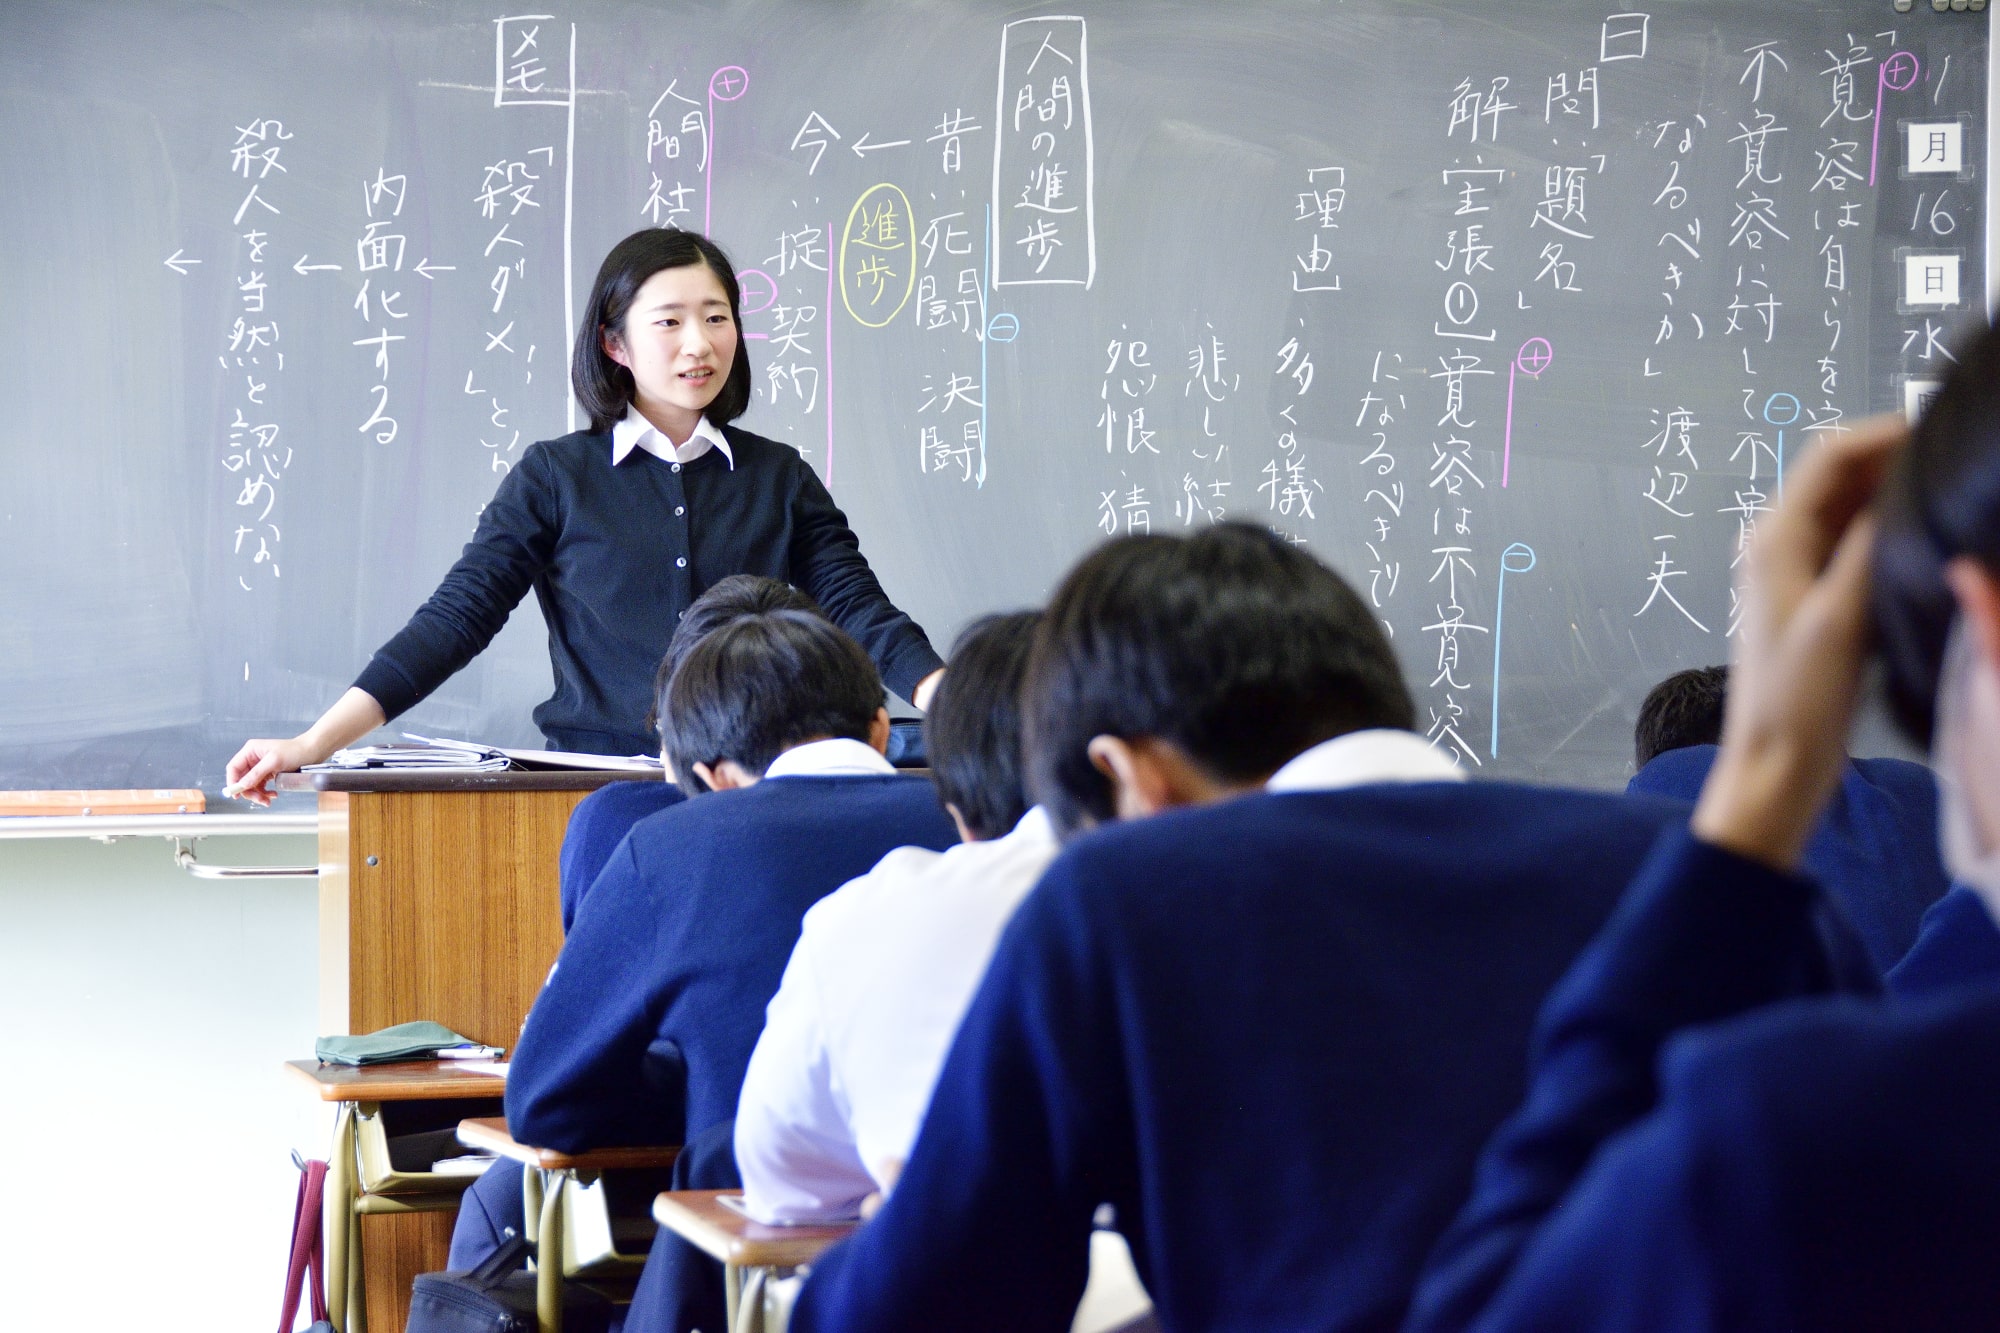 11月16日水
「寛容は自らを守
不寛容に対して不寛容
なるべきか」渡辺一夫
一
問:「題名」
解:[主張①]寛容は不寛容
になるべきでない
[理由]・多くの犠
・悲しい結
・怨恨・猜
人間の進歩
昔:死闘・決闘
進歩
今:掟・契約・
人間社
メモ
「殺人ダメ!」という
内面化する
殺人を当然と認めない